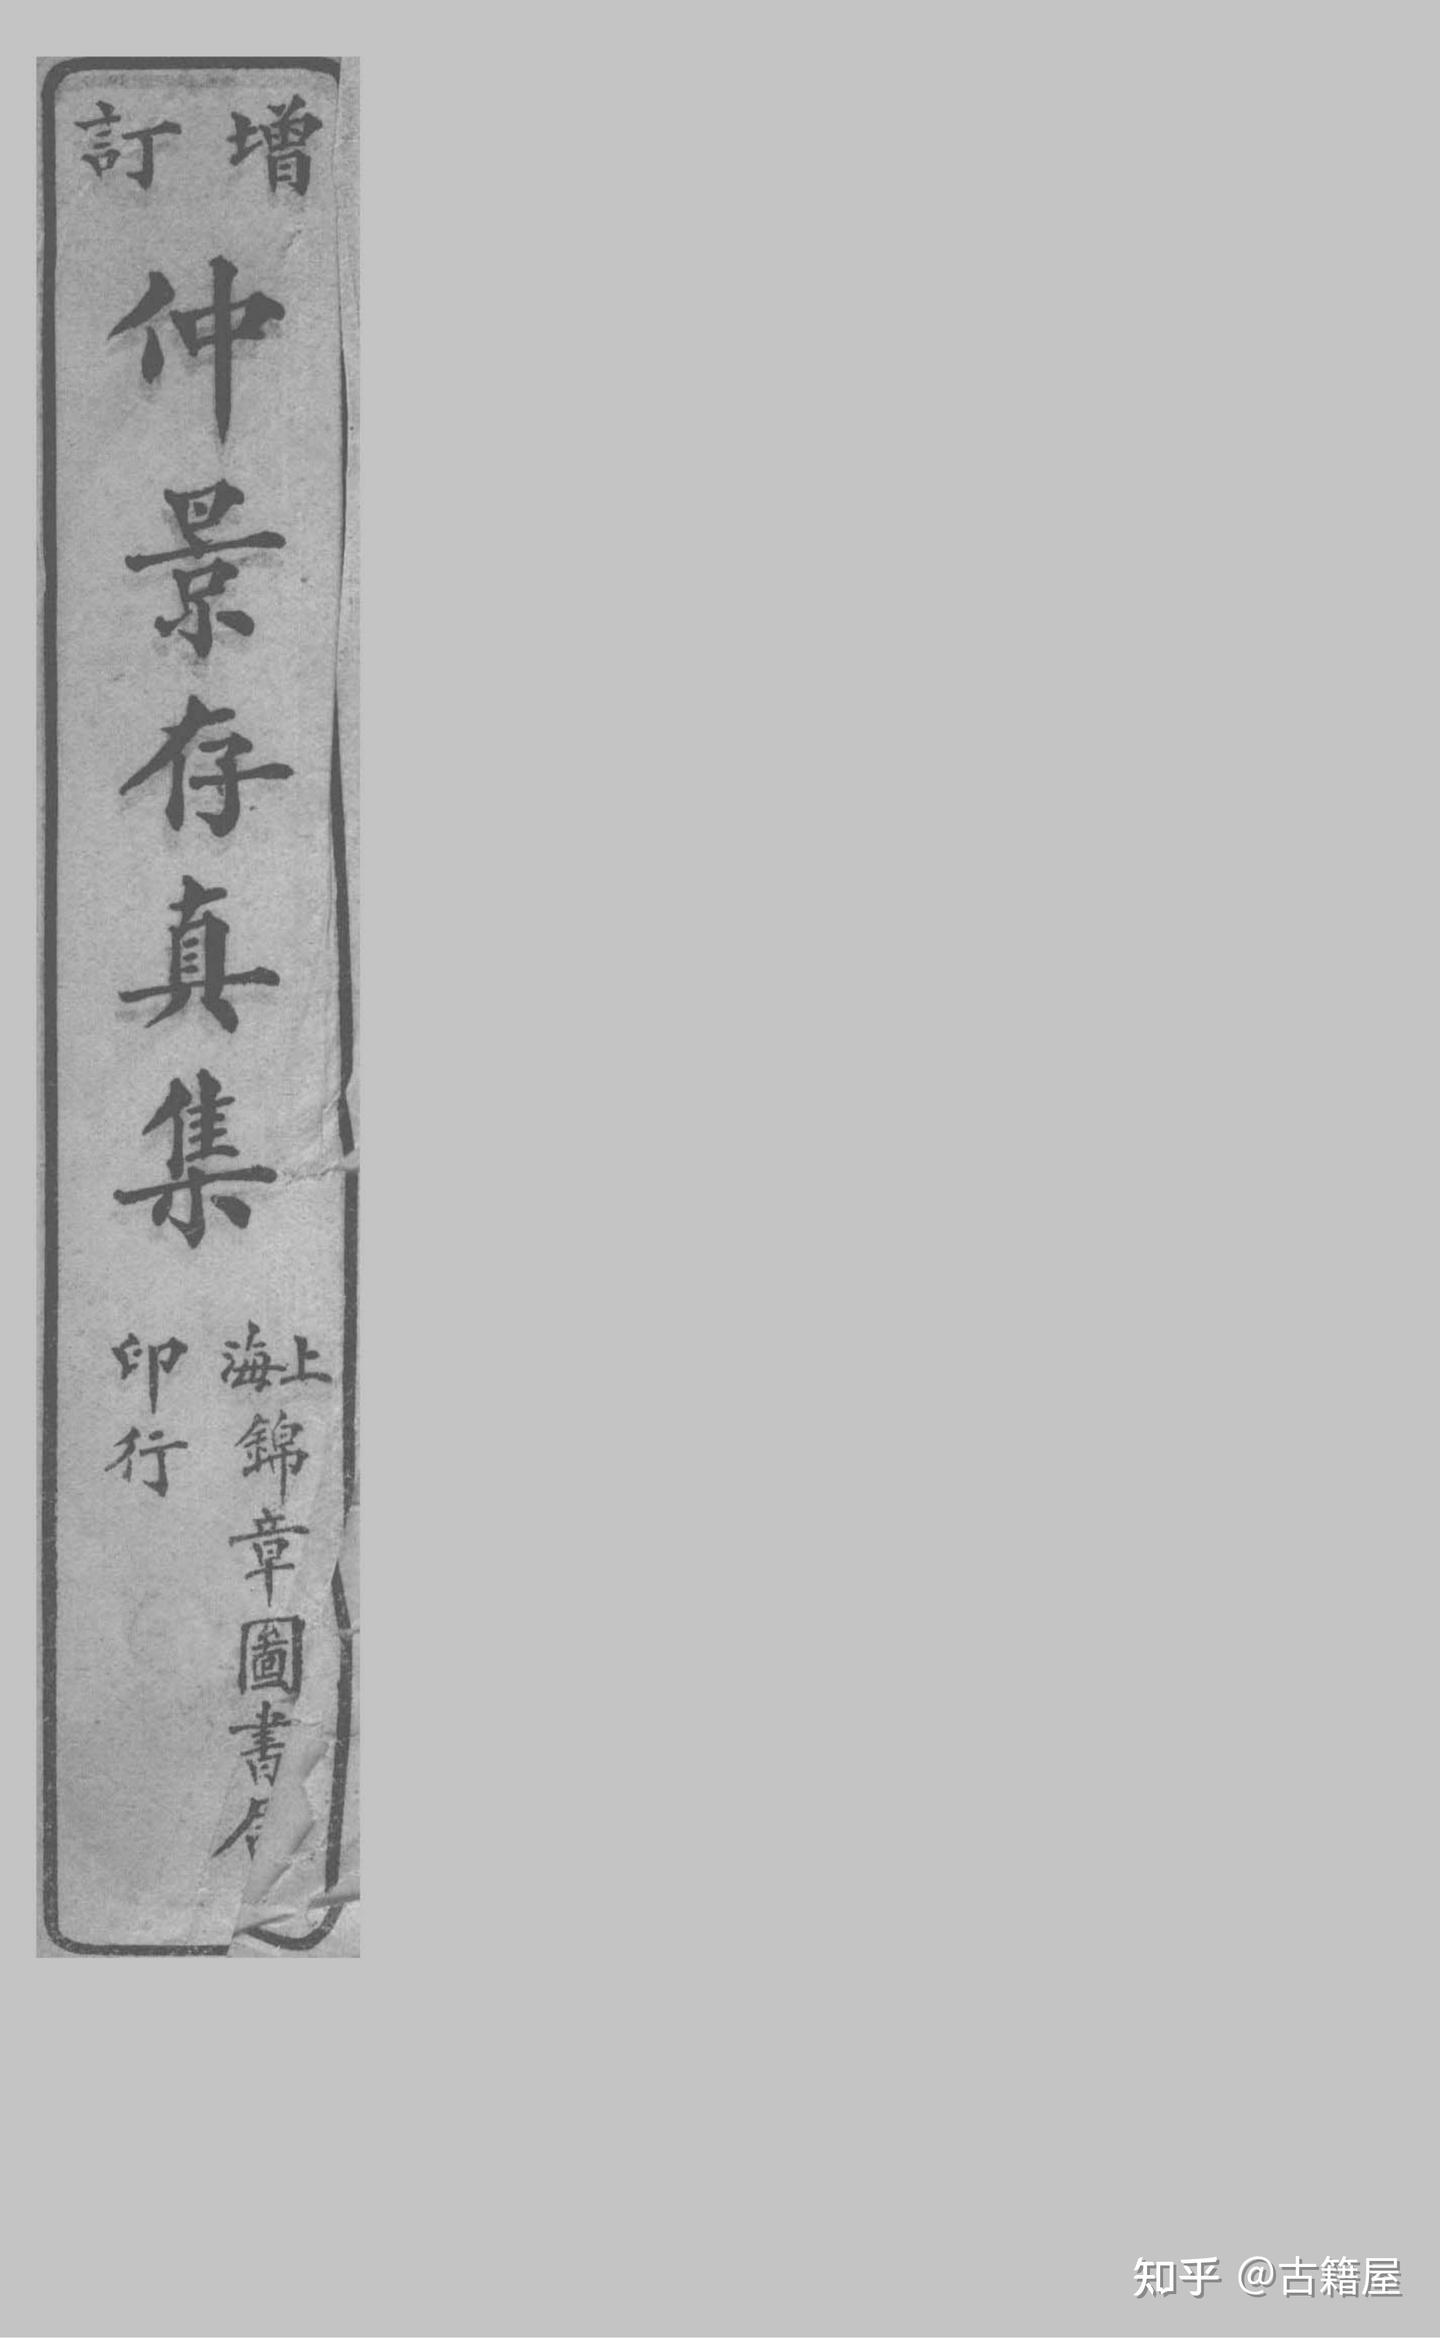 增訂
仲景存真集
上海錦章圖書
印行
知乎 @古籍屋